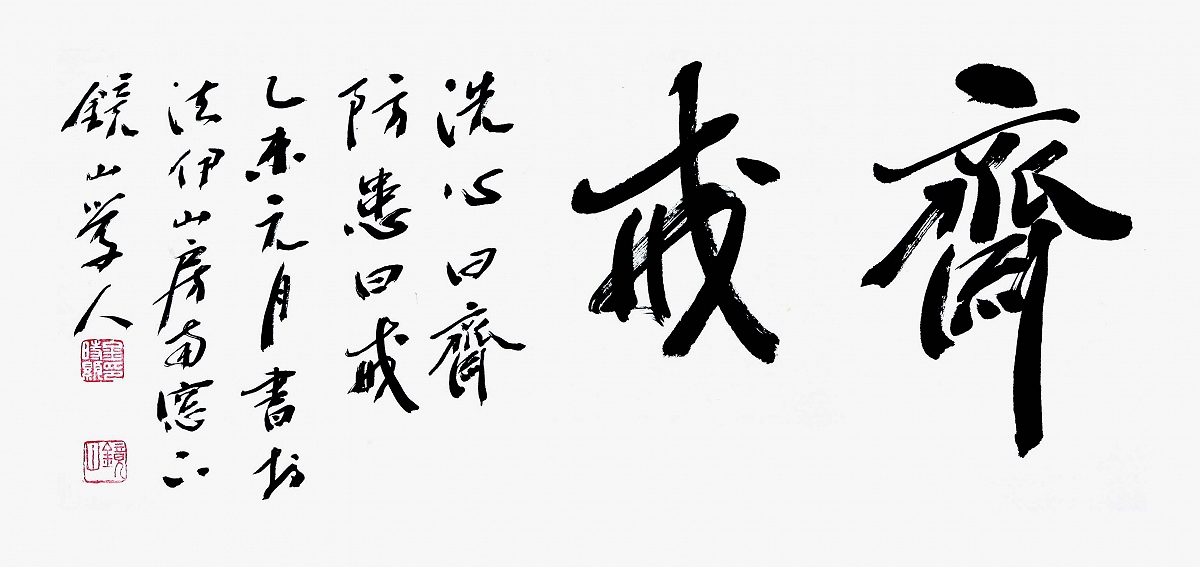 齊戒
洗心曰齊
防患曰戒
乙未元月書於
法伊山房南窓下
鏡山學人
鏡山